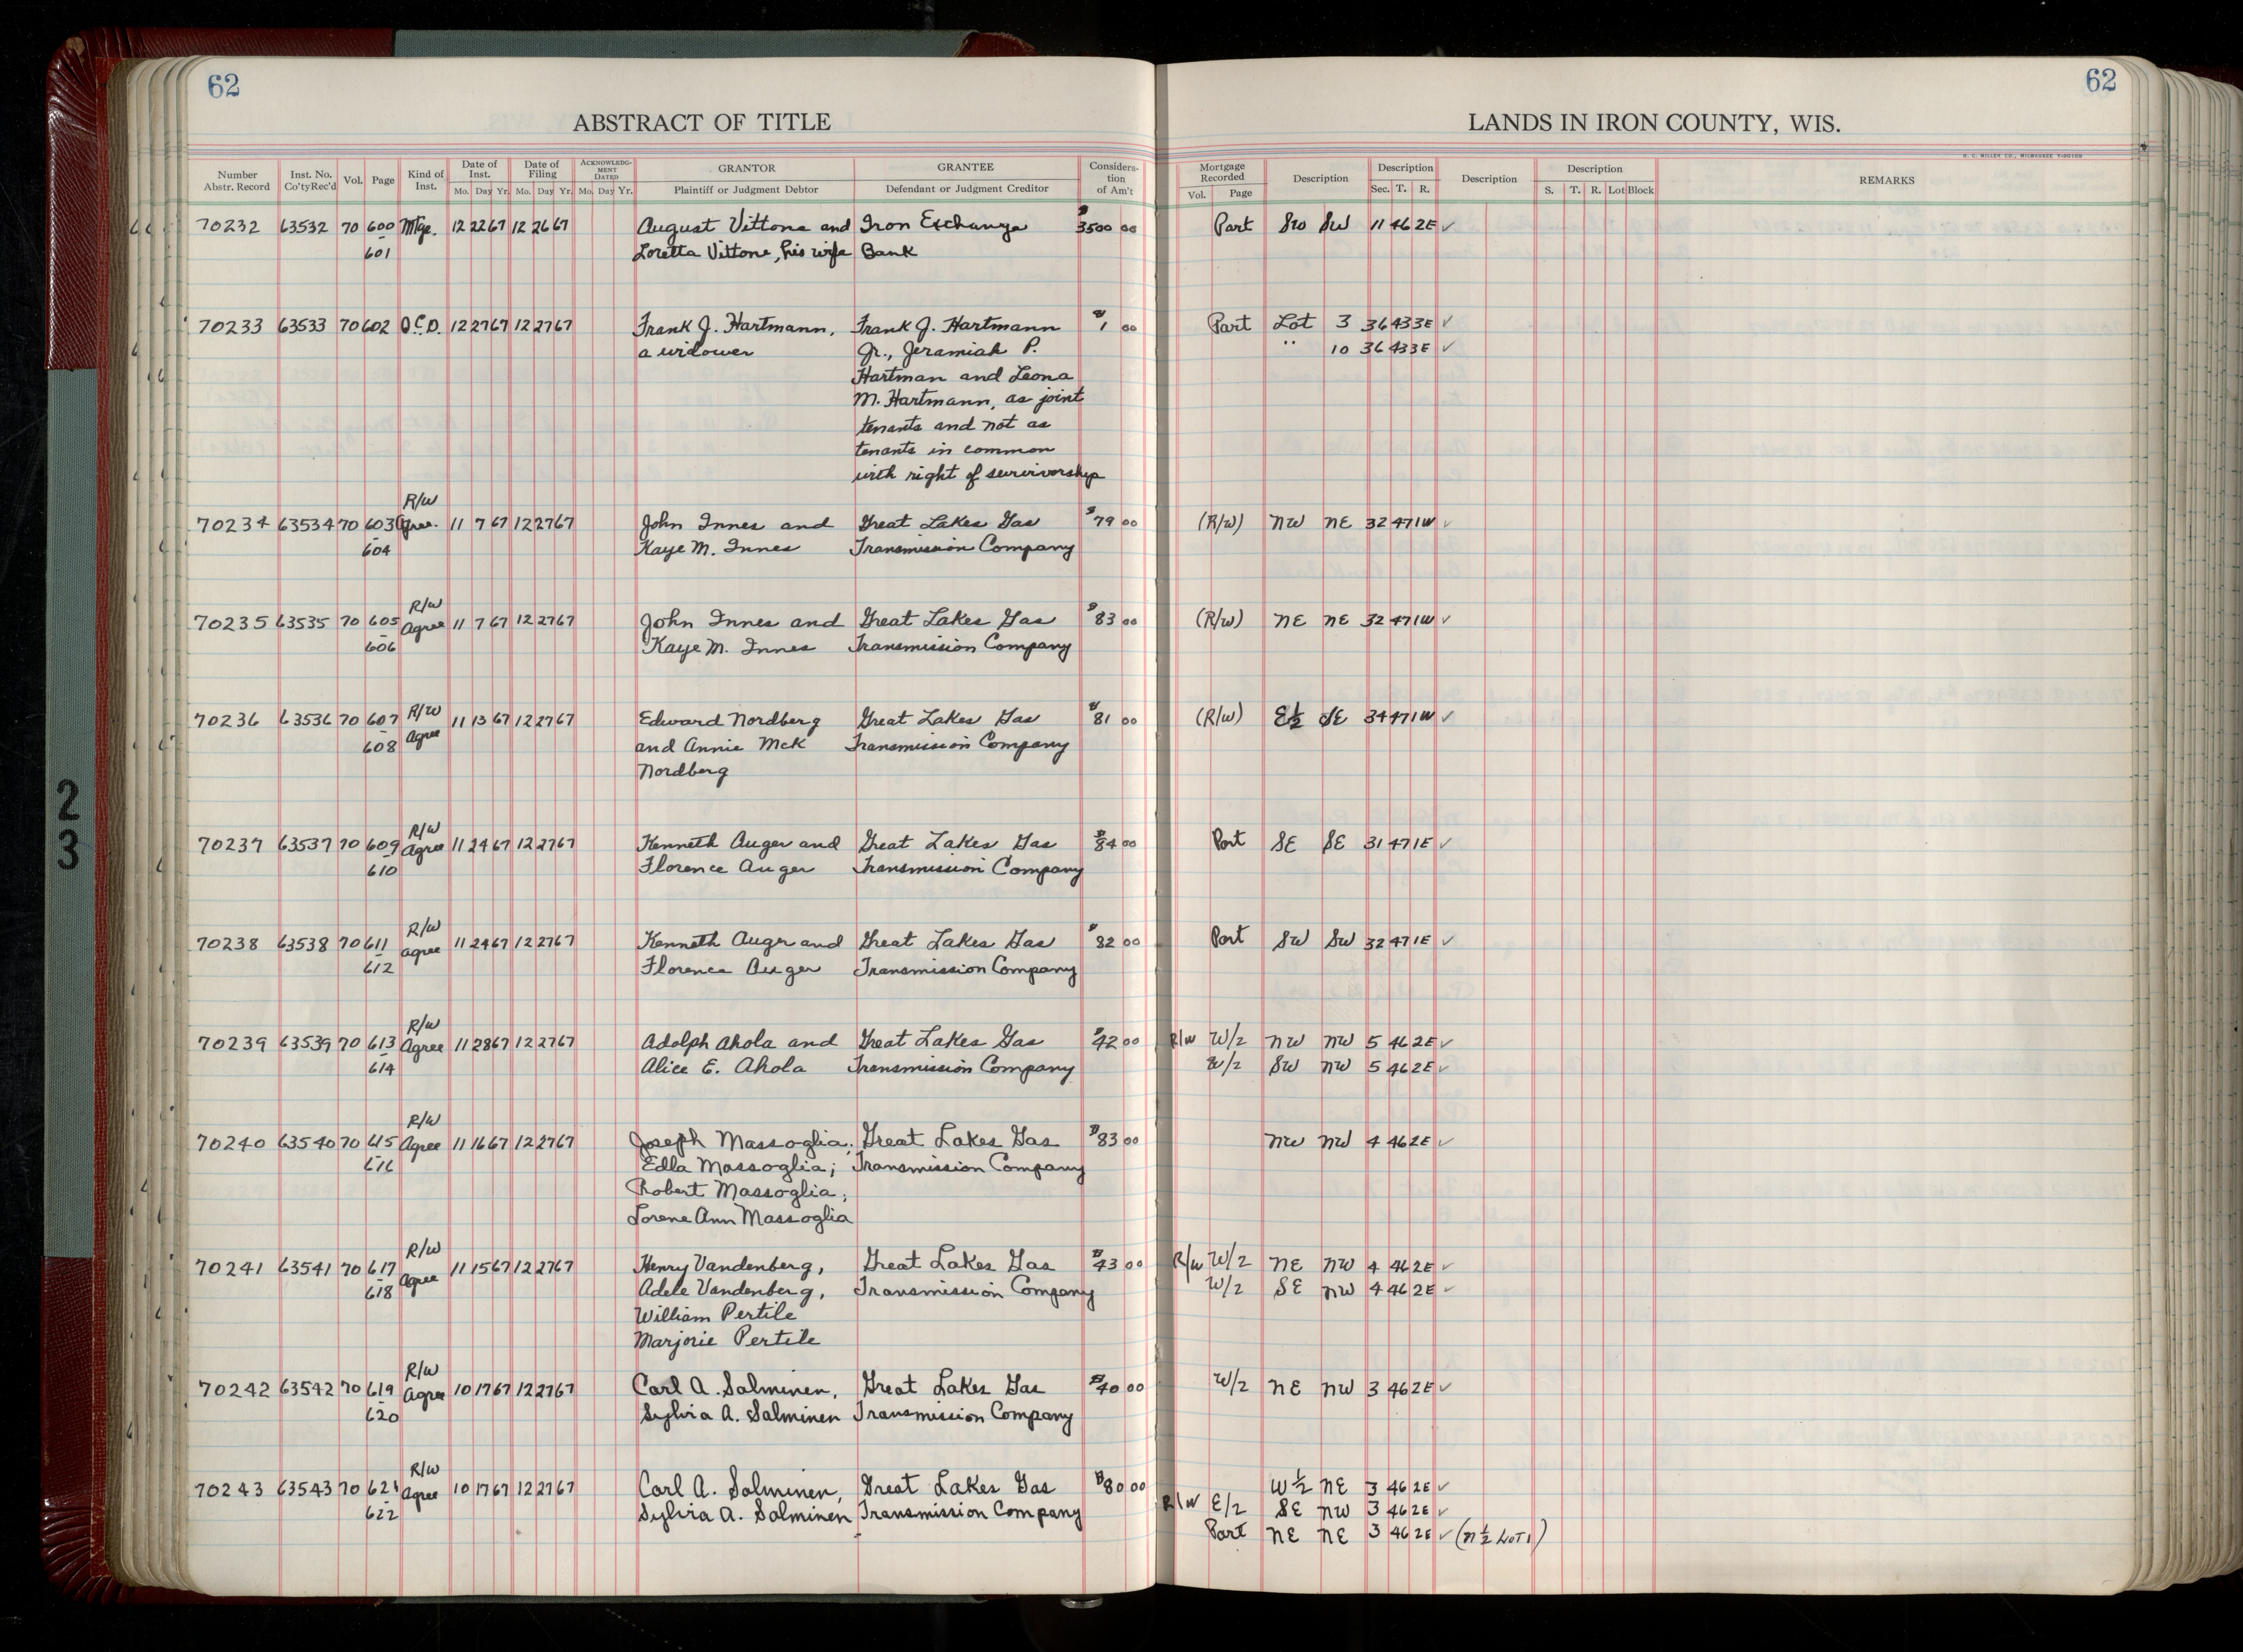 62
62
ABSTRACT OF TITLE
LANDS IN IRON COUNTY, WIS.
H. C. MILLER CO., MILWAUKEE
Number Abstr. Record Inst. No. Co'ty Rec'd Vol. Page Kind of Inst. Date of Inst. Mo. Day Yr. Date of Filing Mo. Day Yr. ACKNOWLEDGMENT DATED Mo. Day Yr. GRANTOR Plaintiff or Judgment Debtor GRANTEE Defendant or Judgment Creditor Consideration of Am't Mortgage Recorded Vol. Page Description Description Sec. T. R. Description Description S. T. R. Lot Block REMARKS
70232 63532 70 600 Mtge. 12 22 67 12 26 67 August Vittone and Iron Exchange $3500 00 Part SW SW 11 46 2E ✓
- 601 Loretta Vittone, his wife Bank
70233 63533 70 602 Q.C.D. 12 27 67 12 27 67 Frank J. Hartmann, Frank J. Hartmann $1 00 Part Lot 3 36 43 3E ✓
a widower Jr., Jeramiah P. " 10 36 43 3E ✓
Hartman and Leona
M. Hartmann, as joint
tenants and not as
tenants in common
with right of survivorship
R/W
70234 63534 70 603 Agree. 11 7 67 12 27 67 John Innes and Great Lakes Gas $79 00 (R/W) NW NE 32 47 1W ✓
- 604 Kaye M. Innes Transmission Company
R/W
70235 63535 70 605 Agree 11 7 67 12 27 67 John Innes and Great Lakes Gas $83 00 (R/W) NE NE 32 47 1W ✓
- 606 Kaye M. Innes Transmission Company
70236 63536 70 607 R/W 11 13 67 12 27 67 Edward Nordberg Great Lakes Gas $81 00 (R/W) E½ SE 34 47 1W ✓
- 608 Agree and Annie McK Transmission Company
Nordberg
R/W
70237 63537 70 609 Agree 11 24 67 12 27 67 Kenneth Auger and Great Lakes Gas $84 00 Part SE SE 31 47 1E ✓
- 610 Florence Auger Transmission Company
R/W
70238 63538 70 611 Agree 11 24 67 12 27 67 Kenneth Auger and Great Lakes Gas $82 00 Part SW SW 32 47 1E ✓
- 612 Florence Auger Transmission Company
R/W
70239 63539 70 613 Agree 11 28 67 12 27 67 Adolph Ahola and Great Lakes Gas $42 00 R/W W/2 NW NW 5 46 2E ✓
- 614 Alice E. Ahola Transmission Company W/2 SW NW 5 46 2E ✓
R/W
70240 63540 70 615 Agree 11 16 67 12 27 67 Joseph Massoglia; Great Lakes Gas $83 00 NW NW 4 46 2E ✓
- 616 Edla Massoglia; Transmission Company
Robert Massoglia;
Lorene Ann Massoglia
R/W
70241 63541 70 617 Agree 11 15 67 12 27 67 Henry Vandenberg, Great Lakes Gas $43 00 R/W W/2 NE NW 4 46 2E ✓
- 618 Adele Vandenberg, Transmission Company W/2 SE NW 4 46 2E ✓
William Pertile
Marjorie Pertile
R/W
70242 63542 70 619 Agree 10 17 67 12 27 67 Carl A. Salminen, Great Lakes Gas $40 00 W/2 NE NW 3 46 2E ✓
- 620 Sylvia A. Salminen Transmission Company
R/W
70243 63543 70 621 Agree 10 17 67 12 27 67 Carl A. Salminen, Great Lakes Gas $80 00 W½ NE 3 46 2E ✓
- 622 Sylvia A. Salminen Transmission Company R/W E/2 SE NW 3 46 2E ✓
Part NE NE 3 46 2E ✓ (N½ LOT 1)
2
3